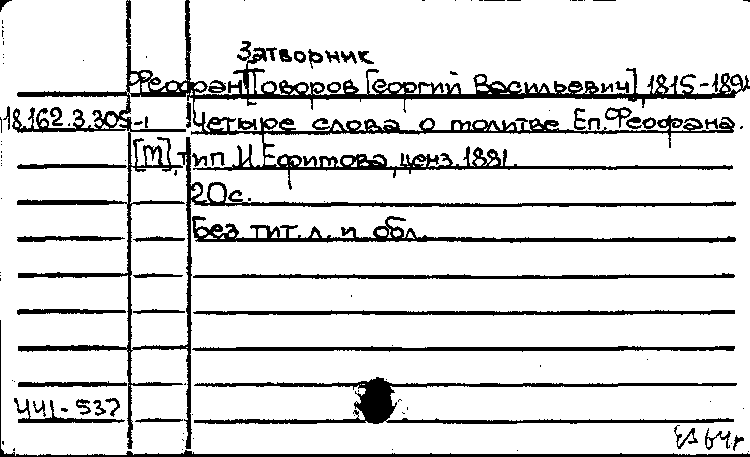 Затворник
Феофан [Говоров Георгий Васильевич], 1815-1894
18.162.3.305-1 Четыре слова о молитве Еп. Феофана.
[М], тип. И. Ефимова, ценз. 1881.
20с.
Без тит. л. и обл.
441-537